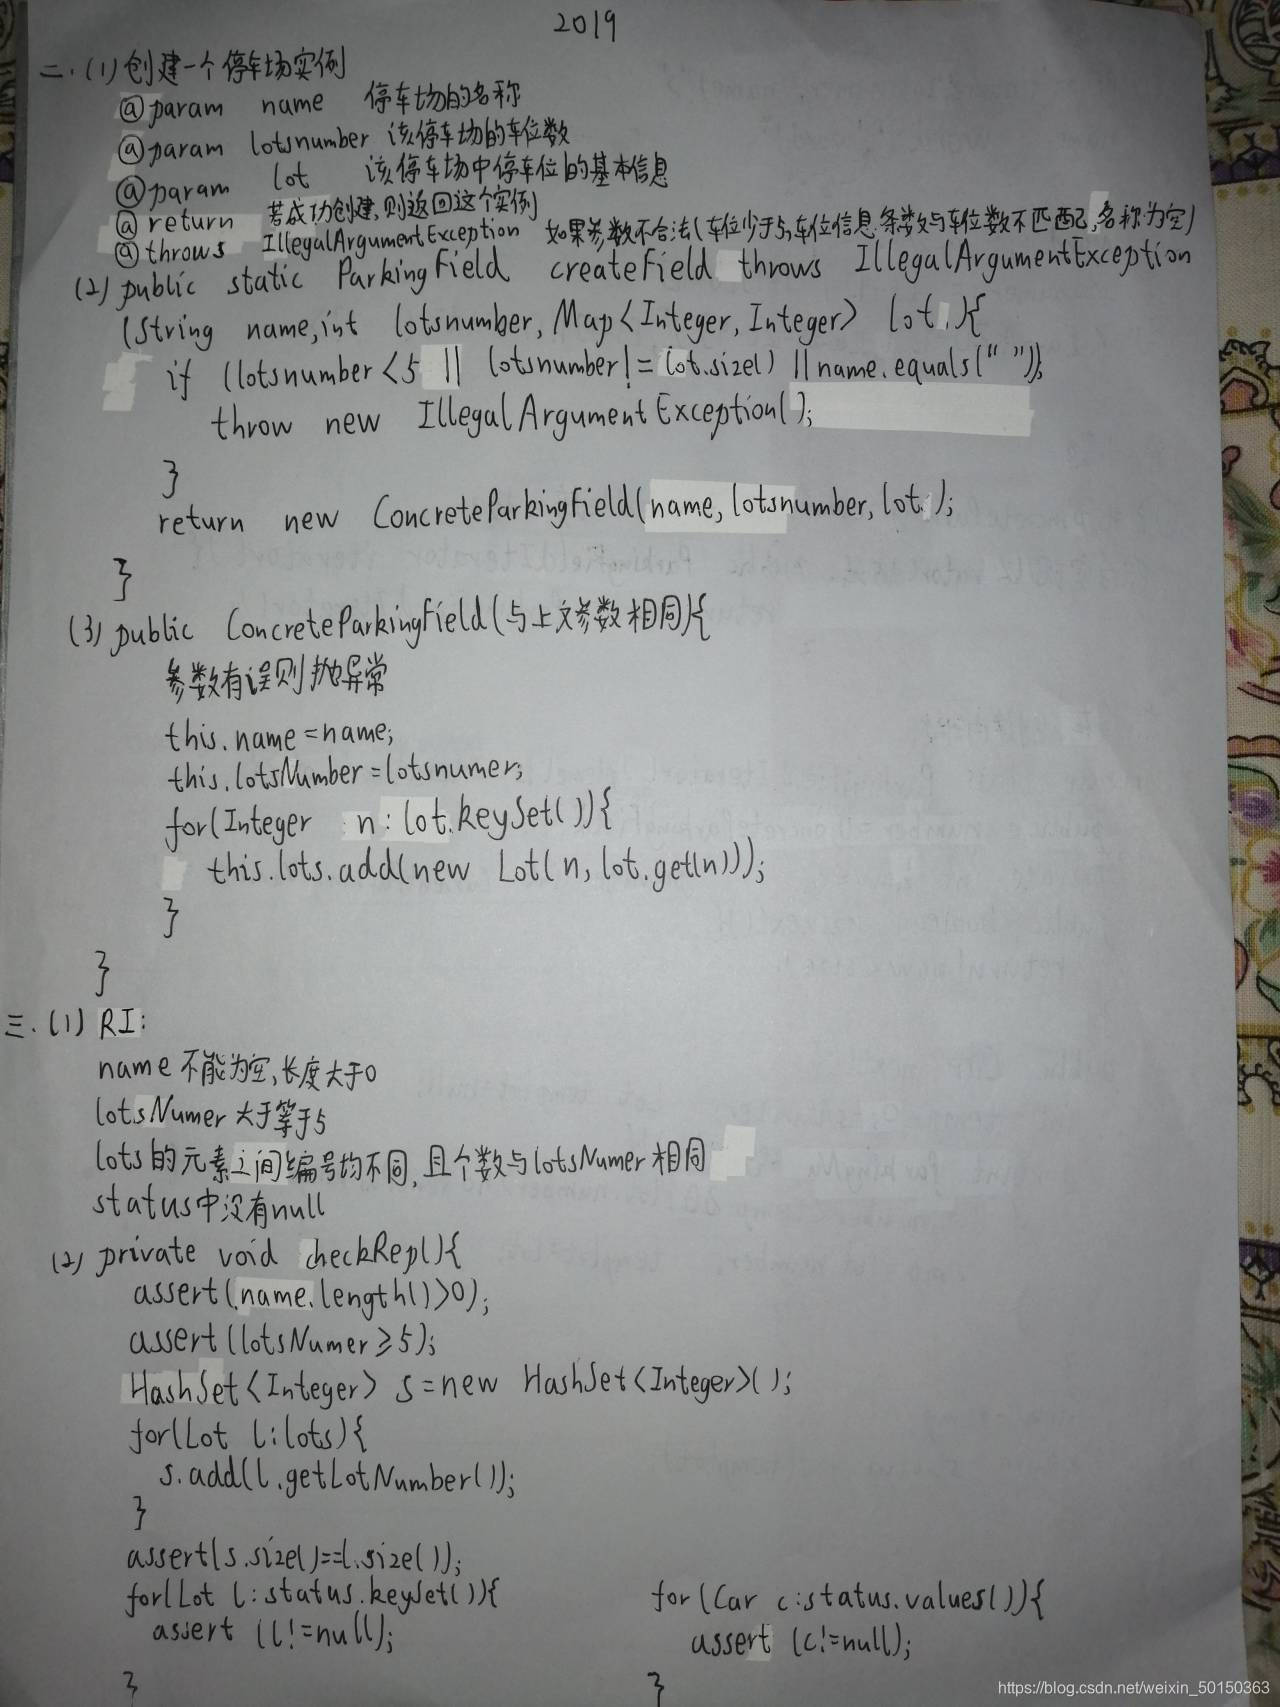 2019
二.(1)创建一个停车场实例
@param name 停车场的名称
@param lotsnumber 该停车场的车位数
@param lot 该停车场中停车位的基本信息
@return 若成功创建,则返回这个实例
@throws IllegalArgumentException 如果参数不合法(车位少于5,车位信息条数与车位数不匹配,名称为空)
(2) public static ParkingField createField throws IllegalArgumentException
(String name,int lotsnumber, Map<Integer, Integer> lot ){
if (lotsnumber<5 || lotsnumber!= lot.size() || name.equals(" ")){
throw new IllegalArgumentException();
}
return new ConcreteParkingField(name, lotsnumber, lot );
}
(3) public ConcreteParkingField(与上文参数相同){
参数有误则抛异常
this.name=name;
this.lotsNumber=lotsnumer;
for(Integer n: lot.keySet()){
this.lots.add(new Lot(n, lot.get(n)));
}
}
三.(1) RI:
name 不能为空,长度大于0
lotsNumer 大于等于5
lots的元素之间编号均不同,且个数与lotsNumer相同
status中没有null
(2) private void checkRep(){
assert(name.length()>0);
assert(lotsNumer≥5);
HashSet<Integer> s=new HashSet<Integer>();
for(Lot l:lots){
s.add(l.getLotNumber());
}
assert(s.size()==l.size());
for(Lot l:status.keySet()){ for(Car c:status.values()){
assert (l!=null); assert (c!=null);
} }
https://blog.csdn.net/weixin_50150363